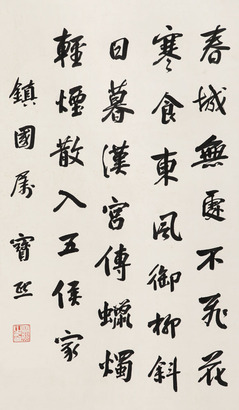 春城無處不飛花
寒食東風御柳斜
日暮漢宮傳蠟燭
輕煙散入五侯家
鎮國属 寶熙